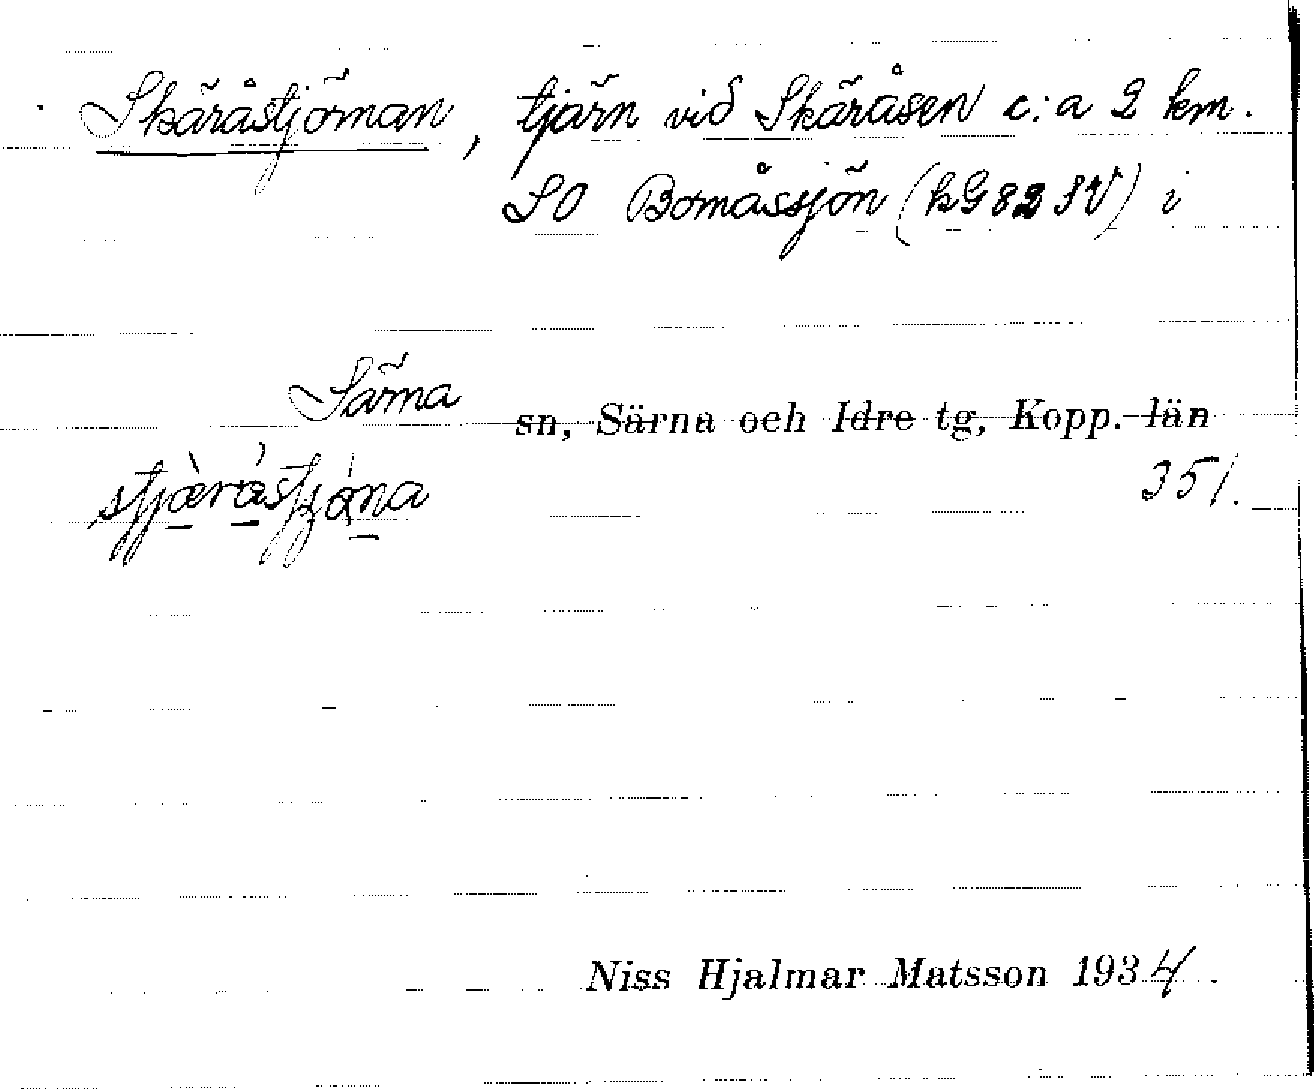 Skäråstjörnan, tjärn vid Skäråsen c:a 2 km.
SO Bomåssjön (kG 82 SV) i
Särna sn, Särna och Idre tg, Kopp. län
351.
Niss Hjalmar Matsson 1934.